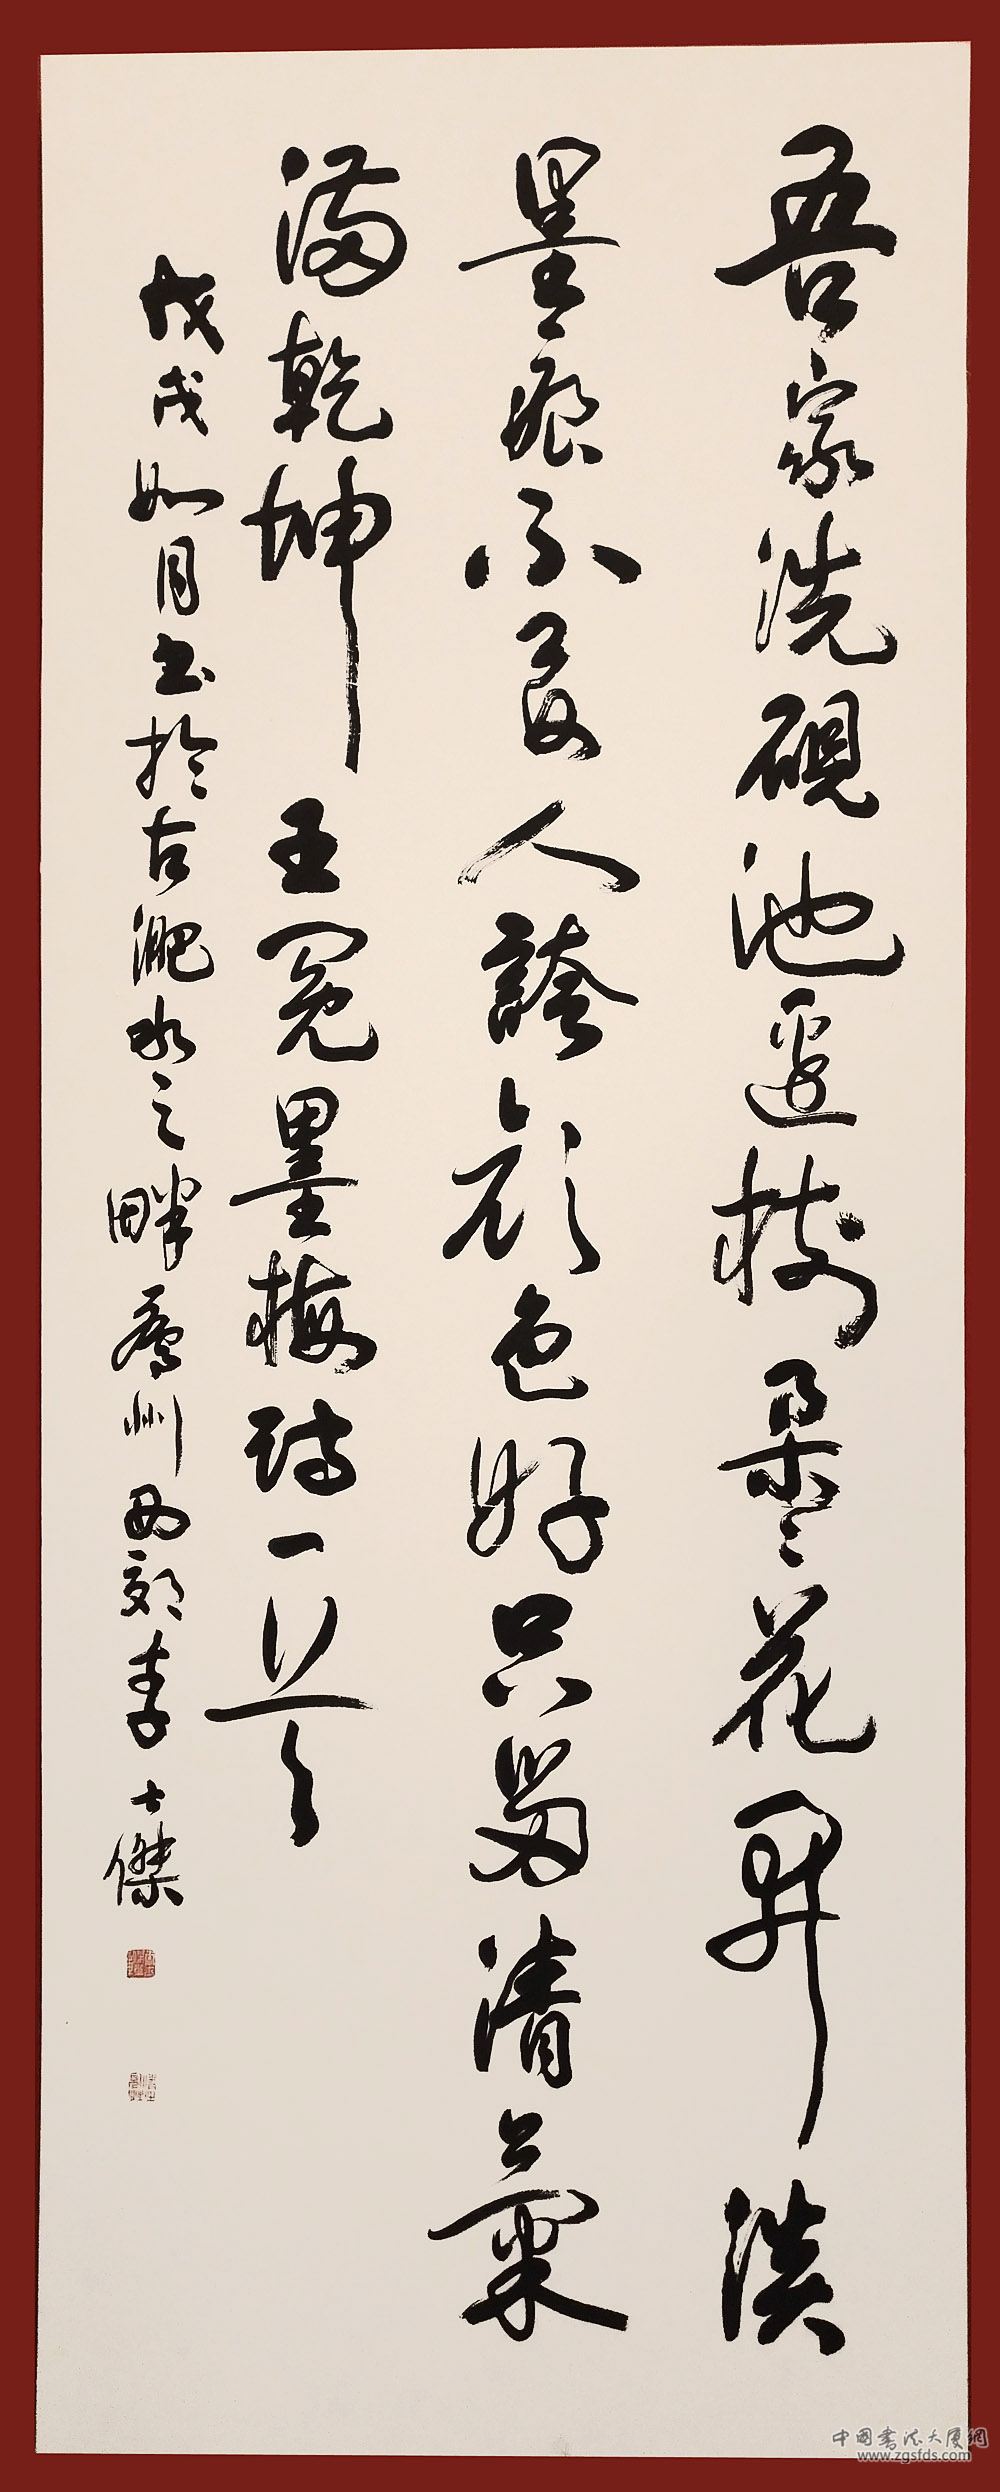 吾家洗硯池邊樹朵々花開淡
墨痕不要人誇顏色好只留清氣
滿乾坤 王冕墨梅詩一首
戊戌如月書於古淝水之畔廬州西郊李士傑
中國書法大廈網
www.zgsfds.com